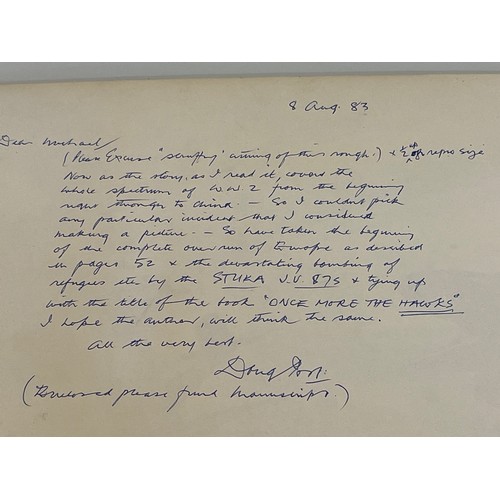 8 Aug. 83
Dear Michael
(Please Excuse "scruffy" writing of this rough.) + ½ up of repro size
Now as the story, as I read it, covers the
whole spectrum of WW2 from the begining
right through to China. — So I couldn't pick
any particular incident that I considered
making a picture. — So have taken the begining
of the complete over run of Europe as described
in pages 52 + the devastating bombing of
refugees etc by the STUKA J.V. 87s + tying up
with the title of the book "ONCE MORE THE HAWKS"
I hope the author, will think the same.
All the very best.
Doug
(Enclosed please find Manuscript.)